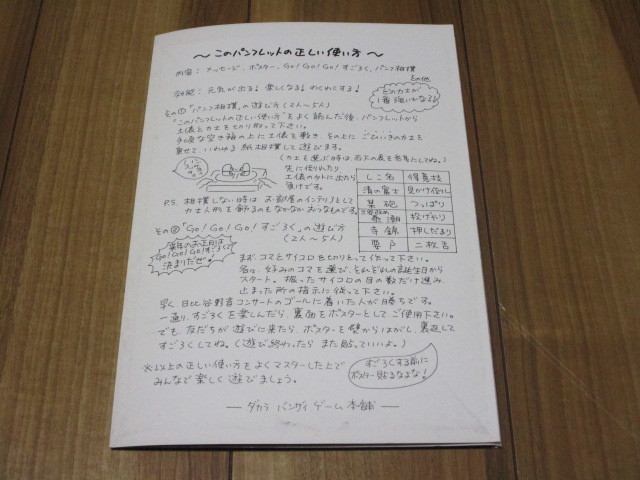 ～このパンフレットの正しい使い方～
内容：メッセージ、ポスター、GO! GO! GO! すごろく、パンフ相撲
その他
効能：元気が出る！楽しくなる！わくわくする！
どの力士が
1番強いかなあ？
その①「パンフ相撲」の遊び方(2人～5人)
"このパンフレットの正しい使い方"をよく読んだ後、パンフレットから
土俵と力士を切り取って下さい。
手頃な空き箱の上に土俵を敷き その上に ごひいきの力士を
乗せて、いわゆる 紙相撲して遊びます。
(力士を選ぶ時は、右下の表を参考にしてね。)
先に倒れたり
土俵の外に出たら
負けです。
P.S. 相撲しない時は お部屋のインテリアとして
力士人形を飾るのもなかなかおつなものです。
しこ名 得意技
清の富士 見かけ倒し
つっぱり
投げやり
寺錦 押しだまり
二枚舌
その②「GO! GO! GO! すごろく」の遊び方
(2人～5人)
来年のお正月は
GO! GO! GO! すごろくで
決まりだぜ！
まず コマとサイコロを切り取って作って下さい。
各々、好みのコマを選び、それぞれの誕生日から
スタート。振ったサイコロの目の数だけ進み、
止まった所の指示に従って下さい。
早く、日比谷野音コンサートのゴールに着いた人が勝ちです。
一通り、すごろくを楽しんだら、裏面をポスターとして ご使用下さい。
でも、友だちが遊びに来たら、ポスターを壁からはがし、裏返して
すごろくしてね。(遊び終わったら また貼っていいよ。)
※以上の正しい使い方をよくマスターした上で
みんなで楽しく遊びましょう。
すごろくする前に
ポスター貼るなよな！
― ダカラ・バンザイ ゲーム 本舗 ―